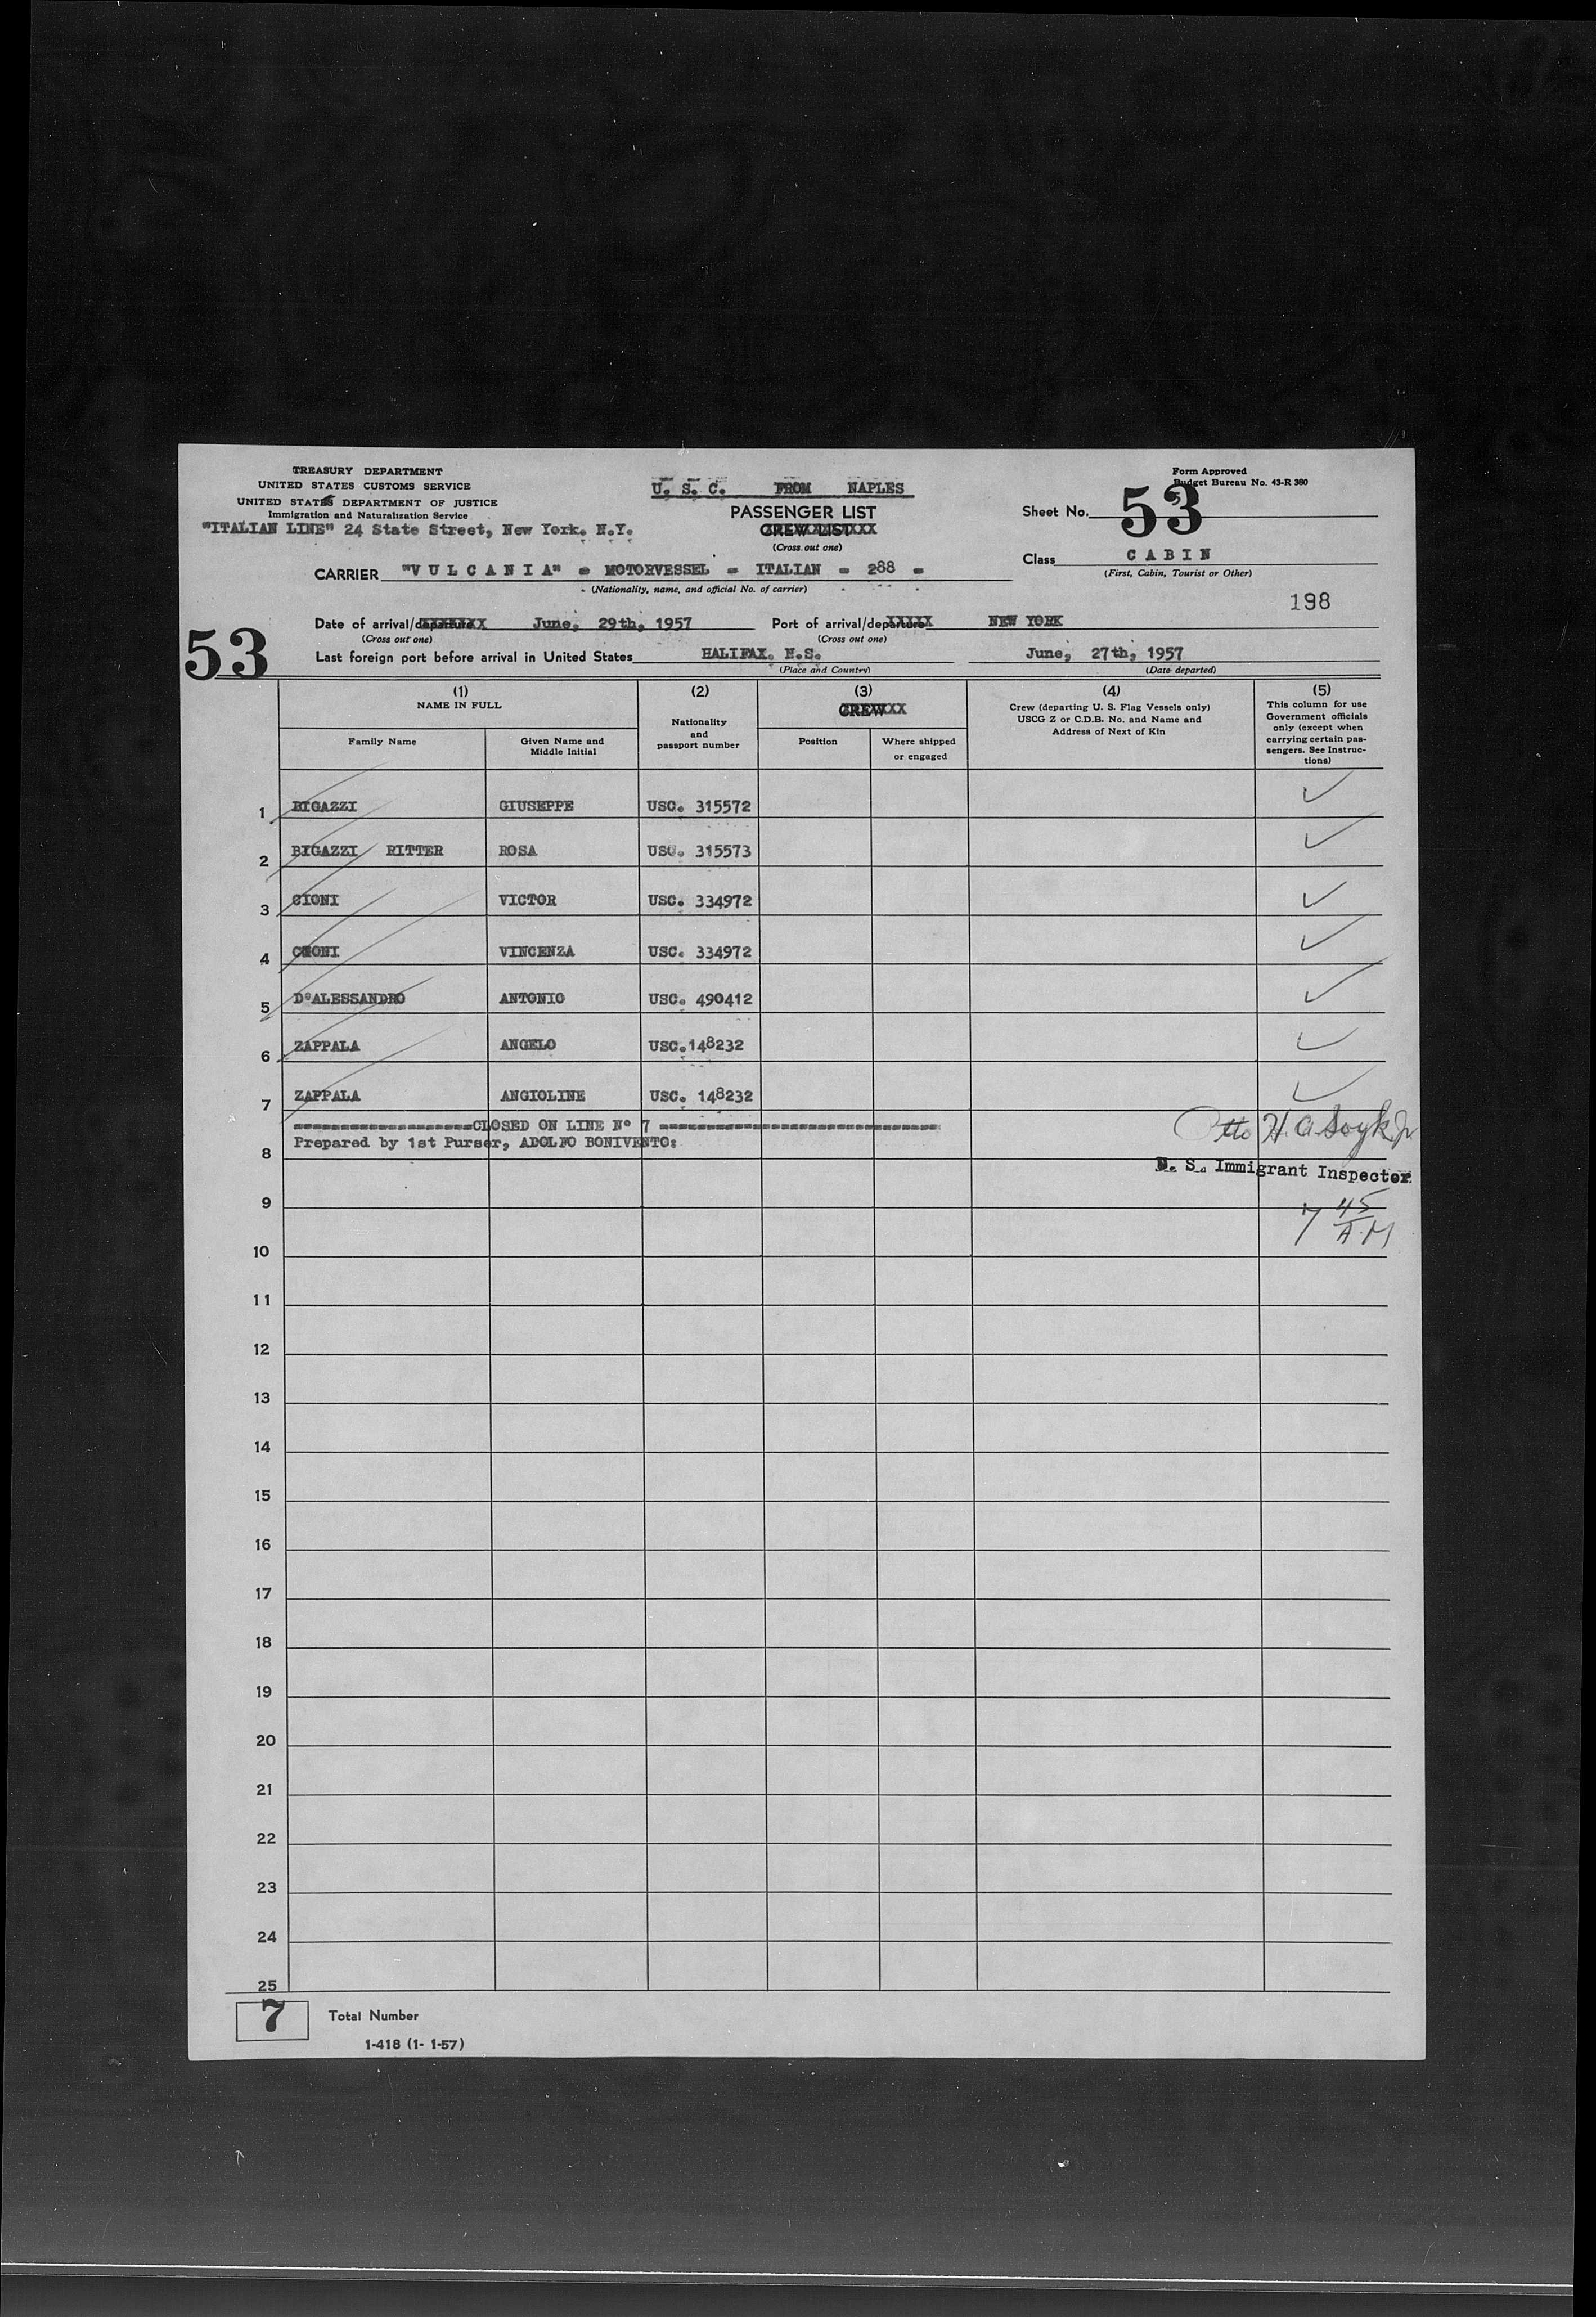 TREASURY DEPARTMENT
UNITED STATES CUSTOMS SERVICE
UNITED STATES DEPARTMENT OF JUSTICE
Immigration and Naturalization Service
"ITALIAN LINE" 24 State Street, New York. N.Y.
U. S. C. FROM NAPLES
PASSENGER LIST
CREW LIST
(Cross out one)
Form Approved
Budget Bureau No. 43-R 360
Sheet No. 53
Class CABIN
(First, Cabin, Tourist or Other)
CARRIER "VULCANIA" = MOTORVESSEL = ITALIAN = 288 =
(Nationality, name, and official No. of carrier)
198
Date of arrival/departure June, 29th, 1957 Port of arrival/departure NEW YORK
(Cross out one) (Cross out one)
53
Last foreign port before arrival in United States HALIFAX. N.S. June, 27th, 1957
(Place and Country) (Date departed)
(1) (2) (3) (4) (5)
NAME IN FULL
Family Name
Given Name and
Middle Initial
Nationality
and
passport number
CREW XX
Position
Where shipped
or engaged
Crew (departing U. S. Flag Vessels only)
USCG Z or C.D.B. No. and Name and
Address of Next of Kin
This column for use
Government officials
only (except when
carrying certain pas-
sengers. See Instruc-
tions)
1 BIGAZZI GIUSEPPE USC. 315572
2 BIGAZZI RITTER ROSA USC. 315573
3 CIONI VICTOR USC. 334972
4 CIONI VINCENZA USC. 334972
5 D'ALESSANDRO ANTONIO USC. 490412
6 ZAPPALA ANGELO USC.148232
7 ZAPPALA ANGIOLINE USC. 148232
CLOSED ON LINE N° 7
Prepared by 1st Purser, ADOLFO BONIVENTO:
Otto H. A. Soyk Jr
8
U. S. Immigrant Inspector
9
7 45
A.M
10
11
12
13
14
15
16
17
18
19
20
21
22
23
24
25
7 Total Number
1-418 (1- 1-57)